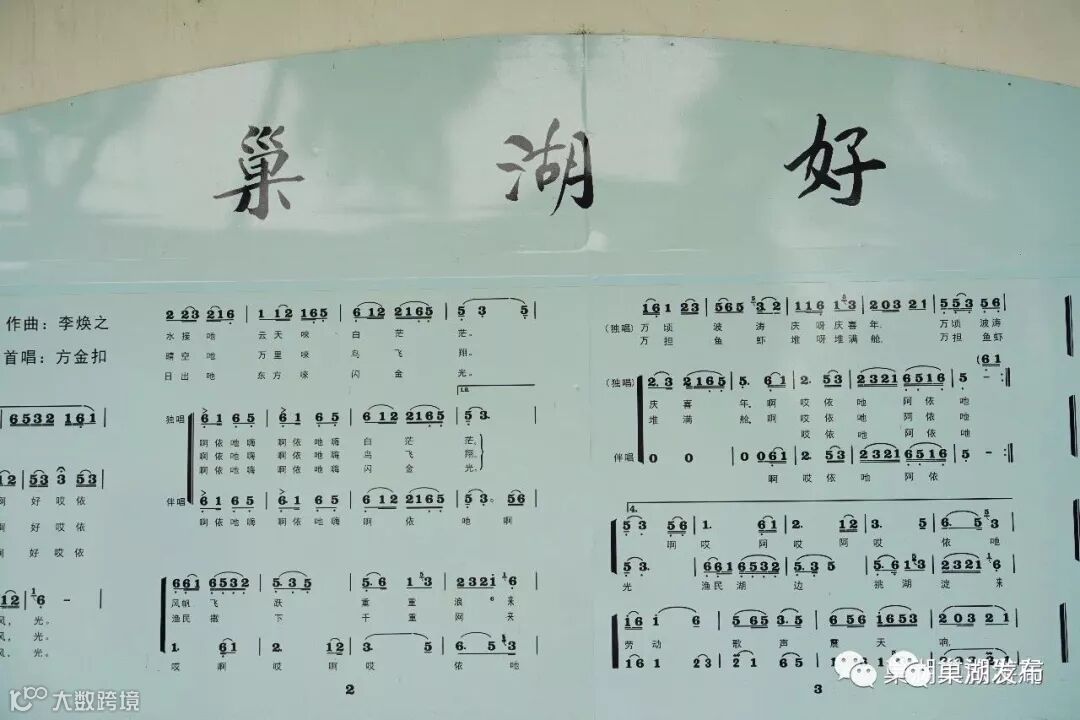 巢湖好
作曲：李焕之
首唱：方金扣
6532 161
好哎依
好哎依
好哎依
风，光。
风，光。
风，光。
2 23 216 | 1 12 165 | 6 12 2165 | 5 3 5 |
水接吔 云天唻 白茫茫。
晴空吔 万里唻 鸟飞翔。
日出吔 东方唻 闪金光。
独唱 6 1 6 5 | 6 1 6 5 | 6 12 2165 | 5 3
啊依吔嗨 啊依吔嗨 白茫茫。
啊依吔嗨 啊依吔嗨 鸟飞翔。
啊依吔嗨 啊依吔嗨 闪金光。
伴唱 6 1 6 5 | 6 1 6 5 | 6 12 2165 | 5 3. 56
啊依吔嗨 啊依吔嗨 啊依吔啊
661 6532 | 5. 3 5 | 5. 6 1 3 | 2321 6 |
风帆飞跃 重重浪来
渔民撒下 千重网来
1. 61 | 2. 12 | 3. 5 | 6. 5 3 5 |
哎啊哎啊哎依吔
2
161 23 | 565 32 | 116 13 | 203 21 | 553 56
(独唱) 万顷波涛庆呀庆喜年。万顷波涛
万担鱼虾堆呀堆满舱。万担鱼虾
(61
(独唱) 2. 3 2165 | 5. 61 | 2. 53 | 2321 6516 | 5 - :||
庆喜年。啊哎依吔阿依吔
堆满舱。啊哎依吔阿依吔
哎依吔阿依吔
伴唱 0 0 | 0 061 | 2. 53 | 2321 6516 | 5 - :||
啊哎依吔阿依吔
4.
5 3. 56 | 1. 61 | 2. 12 | 3. 5 | 6. 5 3
啊哎阿哎阿哎依吔
5 3. | 661 6532 | 5. 3 5
光 渔民湖边挑湖淀来
161 6 | 565 3. 5 | 656 1653 | 203 21 |
劳动歌声震天响。
3
巢湖巢湖发布
大数跨境